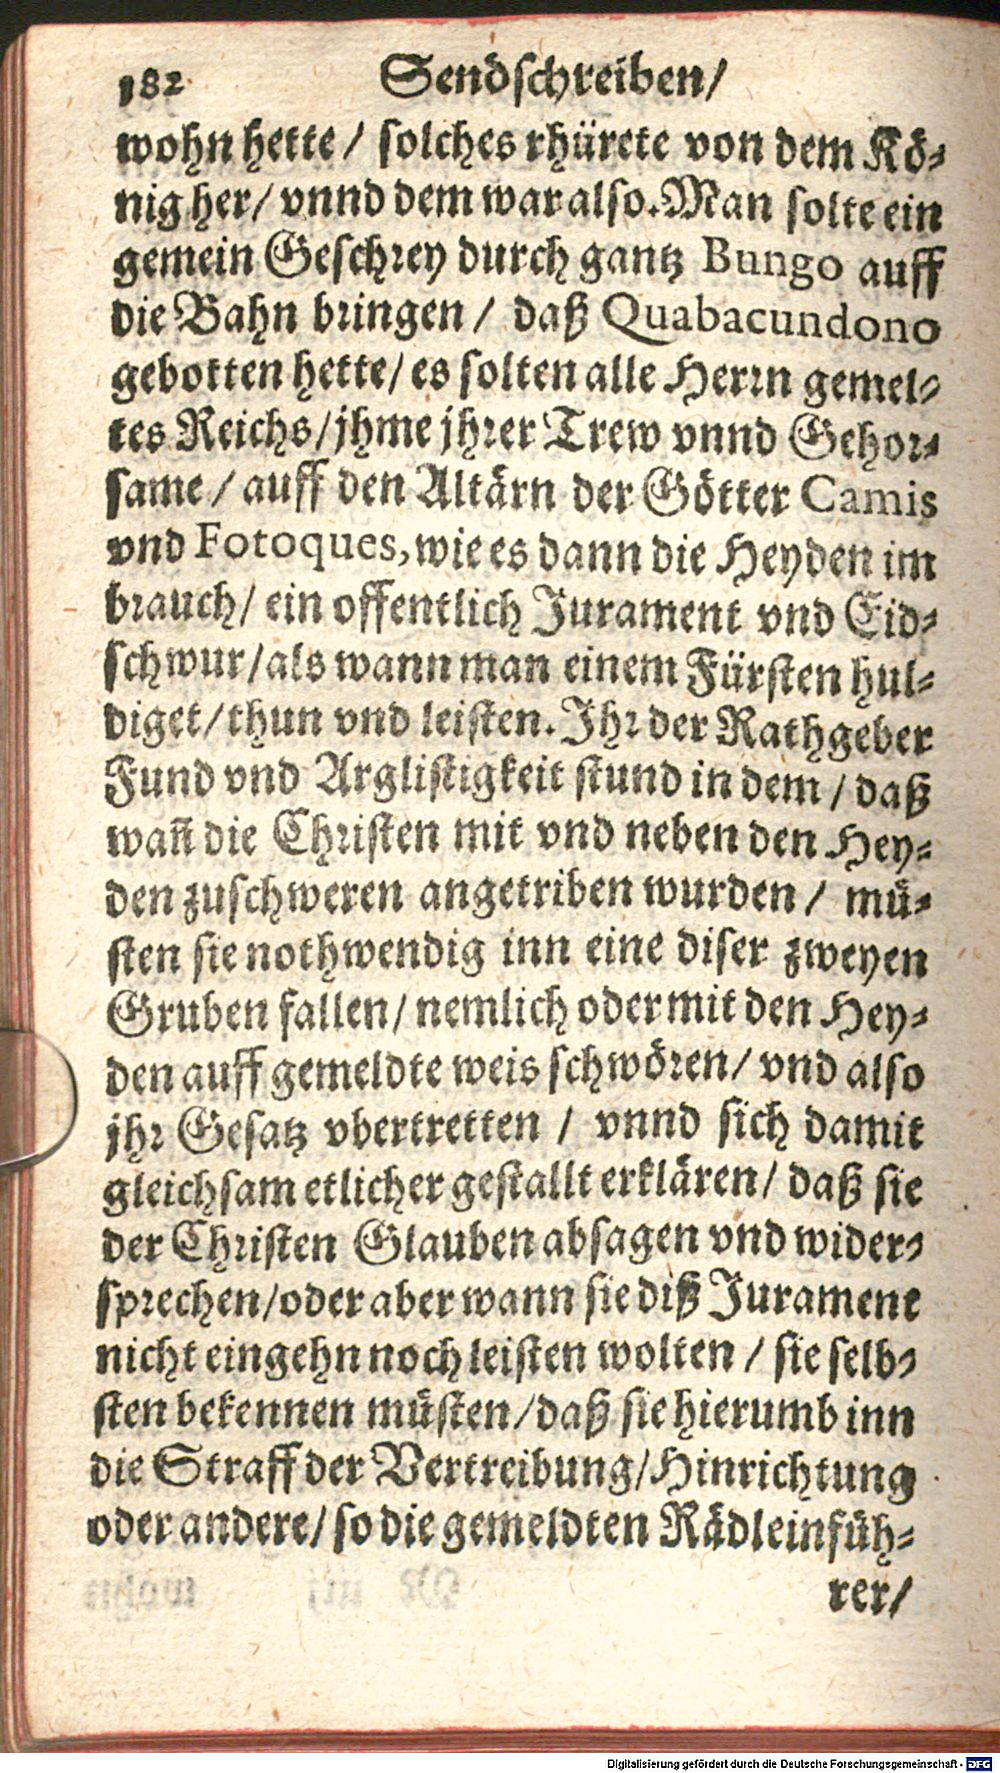 182 Sendschreiben/
wohn hette / solches rhürete von dem Kö⸗
nig her/ vnnd dem war also. Man solte ein
gemein Geschrey durch gantz Bungo auff
die Bahn bringen / daß Quabacundono
gebotten hette/ es solten alle Herrn gemel⸗
tes Reichs/ jhme jhrer Trew vnnd Gehor⸗
same / auff den Altärn der Götter Camis
vnd Fotoques, wie es dann die Heyden im
brauch/ ein offentlich Jurament vnd Eid⸗
schwur/ als wann man einem Fürsten hul⸗
diget/ thun vnd leisten. Jhr der Rathgeber
Fund vnd Arglistigkeit stund in dem / daß
wañ die Christen mit vnd neben den Hey⸗
den zuschweren angetriben wurden / mü⸗
sten sie nothwendig inn eine diser zweyen
Gruben fallen/ nemlich oder mit den Hey⸗
den auff gemeldte weis schwören/ vnd also
jhr Gesatz vbertretten / vnnd sich damit
gleichsam etlicher gestallt erklären/ daß sie
der Christen Glauben absagen vnd wider⸗
sprechen/ oder aber wann sie diß Jurament
nicht eingehn noch leisten wolten / sie selb⸗
sten bekennen müsten/ daß sie hierumb inn
die Straff der Vertreibung/ Hinrichtung
oder andere/ so die gemeldten Rädleinfüh⸗
rer/
Digitalisierung gefördert durch die Deutsche Forschungsgemeinschaft - DFG